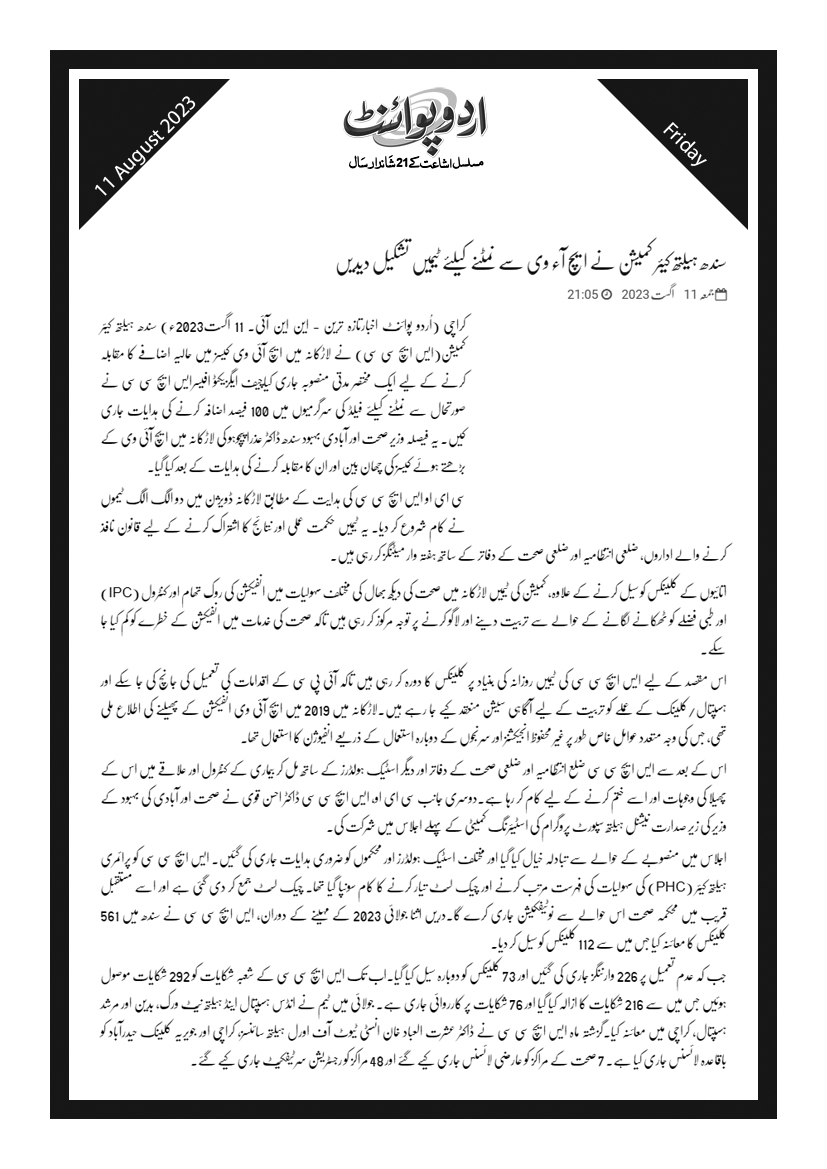 11 August 2023
Friday
اردو پوائنٹ
مسلسل اشاعت کے 21 شاندار سال
سندھ ہیلتھ کیئر کمیشن نے ایچ آء وی سے نمٹنے کیلئے ٹیمیں تشکیل دیدیں
جمعہ 11 اگست 2023 21:05
کراچی (اُردو پوائنٹ اخبارتازہ ترین - این این آئی۔ 11 اگست2023ء) سندھ ہیلتھ کیئر
کمیشن(ایس ایچ سی سی) نے لاڑکانہ میں ایچ آئی وی کیسز میں حالیہ اضافے کا مقابلہ
کرنے کے لیے ایک مختصر مدتی منصوبہ جاری کیاچیف ایگزیکٹو افیسرایس ایچ سی سی نے
صورتحال سے نمٹنے کیلئے فیلڈ کی سرگرمیوں میں 100 فیصد اضافہ کرنے کی ہدایات جاری
کیں۔ یہ فیصلہ وزیر صحت اور آبادی بہبود سندھ ڈاکٹر عذراپیچوہو کی لاڑکانہ میں ایچ آئی وی کے
بڑھتے ہوئے کیسز کی چھان بین اور ان کا مقابلہ کرنے کی ہدایات کے بعد کیا گیا۔
سی ای او ایس ایچ سی سی کی ہدایت کے مطابق لاڑکانہ ڈویژن میں دو الگ الگ ٹیموں
نے کام شروع کر دیا۔ یہ ٹیمیں حکمت عملی اور نتائج کا اشتراک کرنے کے لیے قانون نافذ
کرنے والے اداروں، ضلعی انتظامیہ اور ضلعی صحت کے دفاتر کے ساتھ ہفتہ وار میٹنگز کر رہی ہیں۔
اتائیوں کے کلینکس کو سیل کرنے کے علاوہ، کمیشن کی ٹیمیں لاڑکانہ میں صحت کی دیکھ بھال کی مختلف سہولیات میں انفیکشن کی روک تھام اور کنٹرول (IPC)
اور طبی فضلے کو ٹھکانے لگانے کے حوالے سے تربیت دینے اور لاگو کرنے پر توجہ مرکوز کر رہی ہیں تاکہ صحت کی خدمات میں انفیکشن کے خطرے کو کم کیا جا
سکے۔
اس مقصد کے لیے ایس ایچ سی سی کی ٹیمیں روزانہ کی بنیاد پر کلینکس کا دورہ کر رہی ہیں تاکہ آئی پی سی کے اقدامات کی تعمیل کی جانچ کی جا سکے اور
ہسپتال/کلینک کے عملے کو تربیت کے لیے آگاہی سیشن منعقد کیے جا رہے ہیں۔لاڑکانہ میں 2019 میں ایچ آئی وی انفیکشن کے پھیلنے کی اطلاع ملی
تھی، جس کی وجہ متعدد عوامل خاص طور پر غیر محفوظ انجیکشنز اور سرنجوں کے دوبارہ استعمال کے ذریعے انفیوژن کا استعمال تھا۔
اس کے بعد سے ایس ایچ سی سی ضلع انتظامیہ اور ضلعی صحت کے دفاتر اور دیگر اسٹیک ہولڈرز کے ساتھ مل کر بیماری کے کنٹرول اور علاقے میں اس کے
پھیلا کی وجوہات اور اسے ختم کرنے کے لیے کام کر رہا ہے۔دوسری جانب سی ای او، ایس ایچ سی سی ڈاکٹر احسن قوی نے صحت اور آبادی کی بہبود کے
وزیر کی زیر صدارت نیشنل ہیلتھ سپورٹ پروگرام کی اسٹیئرنگ کمیٹی کے پہلے اجلاس میں شرکت کی۔
اجلاس میں منصوبے کے حوالے سے تبادلہ خیال کیا گیا اور مختلف اسٹیک ہولڈرز اور محکموں کو ضروری ہدایات جاری کی گئیں۔ ایس ایچ سی سی کو پرائمری
ہیلتھ کیئر (PHC) کی سہولیات کی فہرست مرتب کرنے اور چیک لسٹ تیار کرنے کا کام سونپا گیا تھا۔ چیک لسٹ جمع کر دی گئی ہے اور اسے مستقبل
قریب میں محکمہ صحت اس حوالے سے نوٹیفکیشن جاری کرے گا۔دریں اثنا جولائی 2023 کے مہینے کے دوران، ایس ایچ سی سی نے سندھ میں 561
کلینکس کا معائنہ کیا جس میں سے 112 کلینکس کو سیل کر دیا۔
جب کہ عدم تعمیل پر 226 وارننگز جاری کی گئیں اور 73 کلینکس کو دوبارہ سیل کیا گیا۔اب تک ایس ایچ سی سی کے شعبہ شکایات کو 292 شکایات موصول
ہوئیں جس میں سے 216 شکایات کا ازالہ کیا گیا اور 76 شکایات پر کارروائی جاری ہے۔ جولائی میں ٹیم نے انڈس ہسپتال اینڈ ہیلتھ نیٹ ورک، بدین اور مرشد
ہسپتال، کراچی میں معائنہ کیا۔گزشتہ ماہ ایس ایچ سی سی نے ڈاکٹر عشرت العباد خان انسٹی ٹیوٹ آف اورل ہیلتھ سائنسز، کراچی اور جویریہ کلینک حیدرآباد کو
باقاعدہ لائسنس جاری کیا ہے۔ 7 صحت کے مراکز کو عارضی لائسنس جاری کیے گئے اور 48 مراکز کو رجسٹریشن سرٹیفکیٹ جاری کیے گئے۔